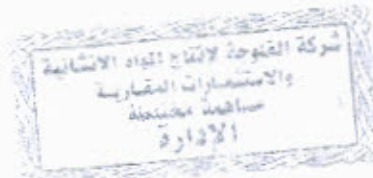 شركة الفتوحة لانتاج المواد الانشائية
والاستثمارات العقارية
مساهمة مختلطة
الادارة